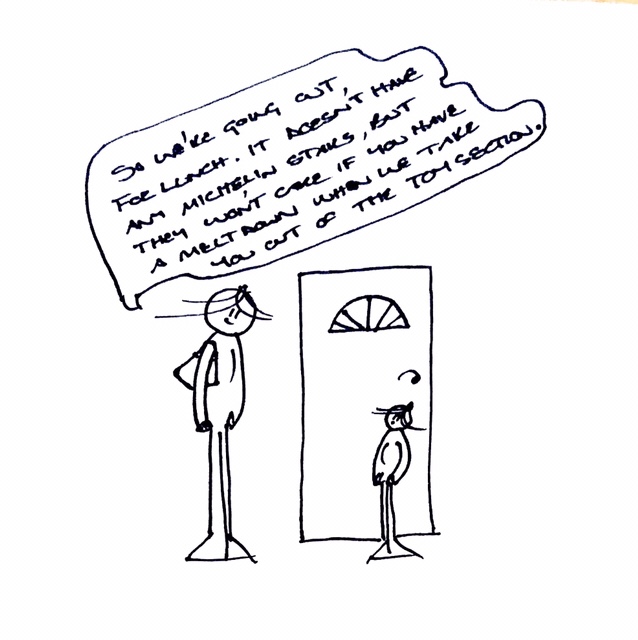 SO WE'RE GOING OUT,
FOR LUNCH. IT DOESN'T HAVE
ANY MICHELIN STARS, BUT
THEY WON'T CARE IF YOU HAVE
A MELTDOWN WHEN WE TAKE
YOU OUT OF THE TOY SECTION.